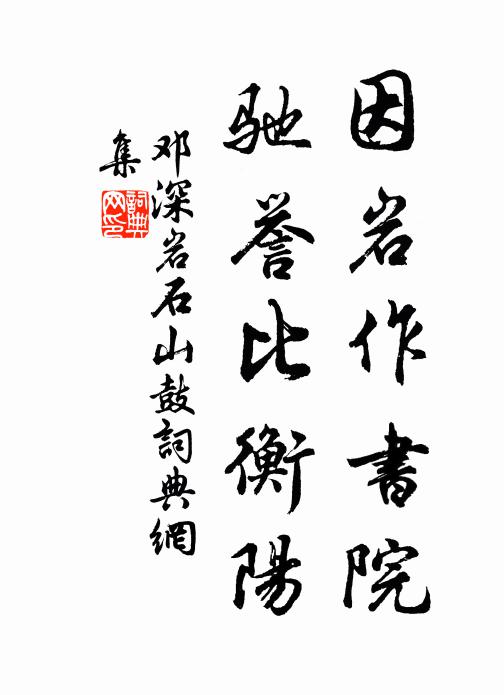 因岩作書院
驰誉比衡陽
邓深岩石山鼓詞典網
集
詞典
网印